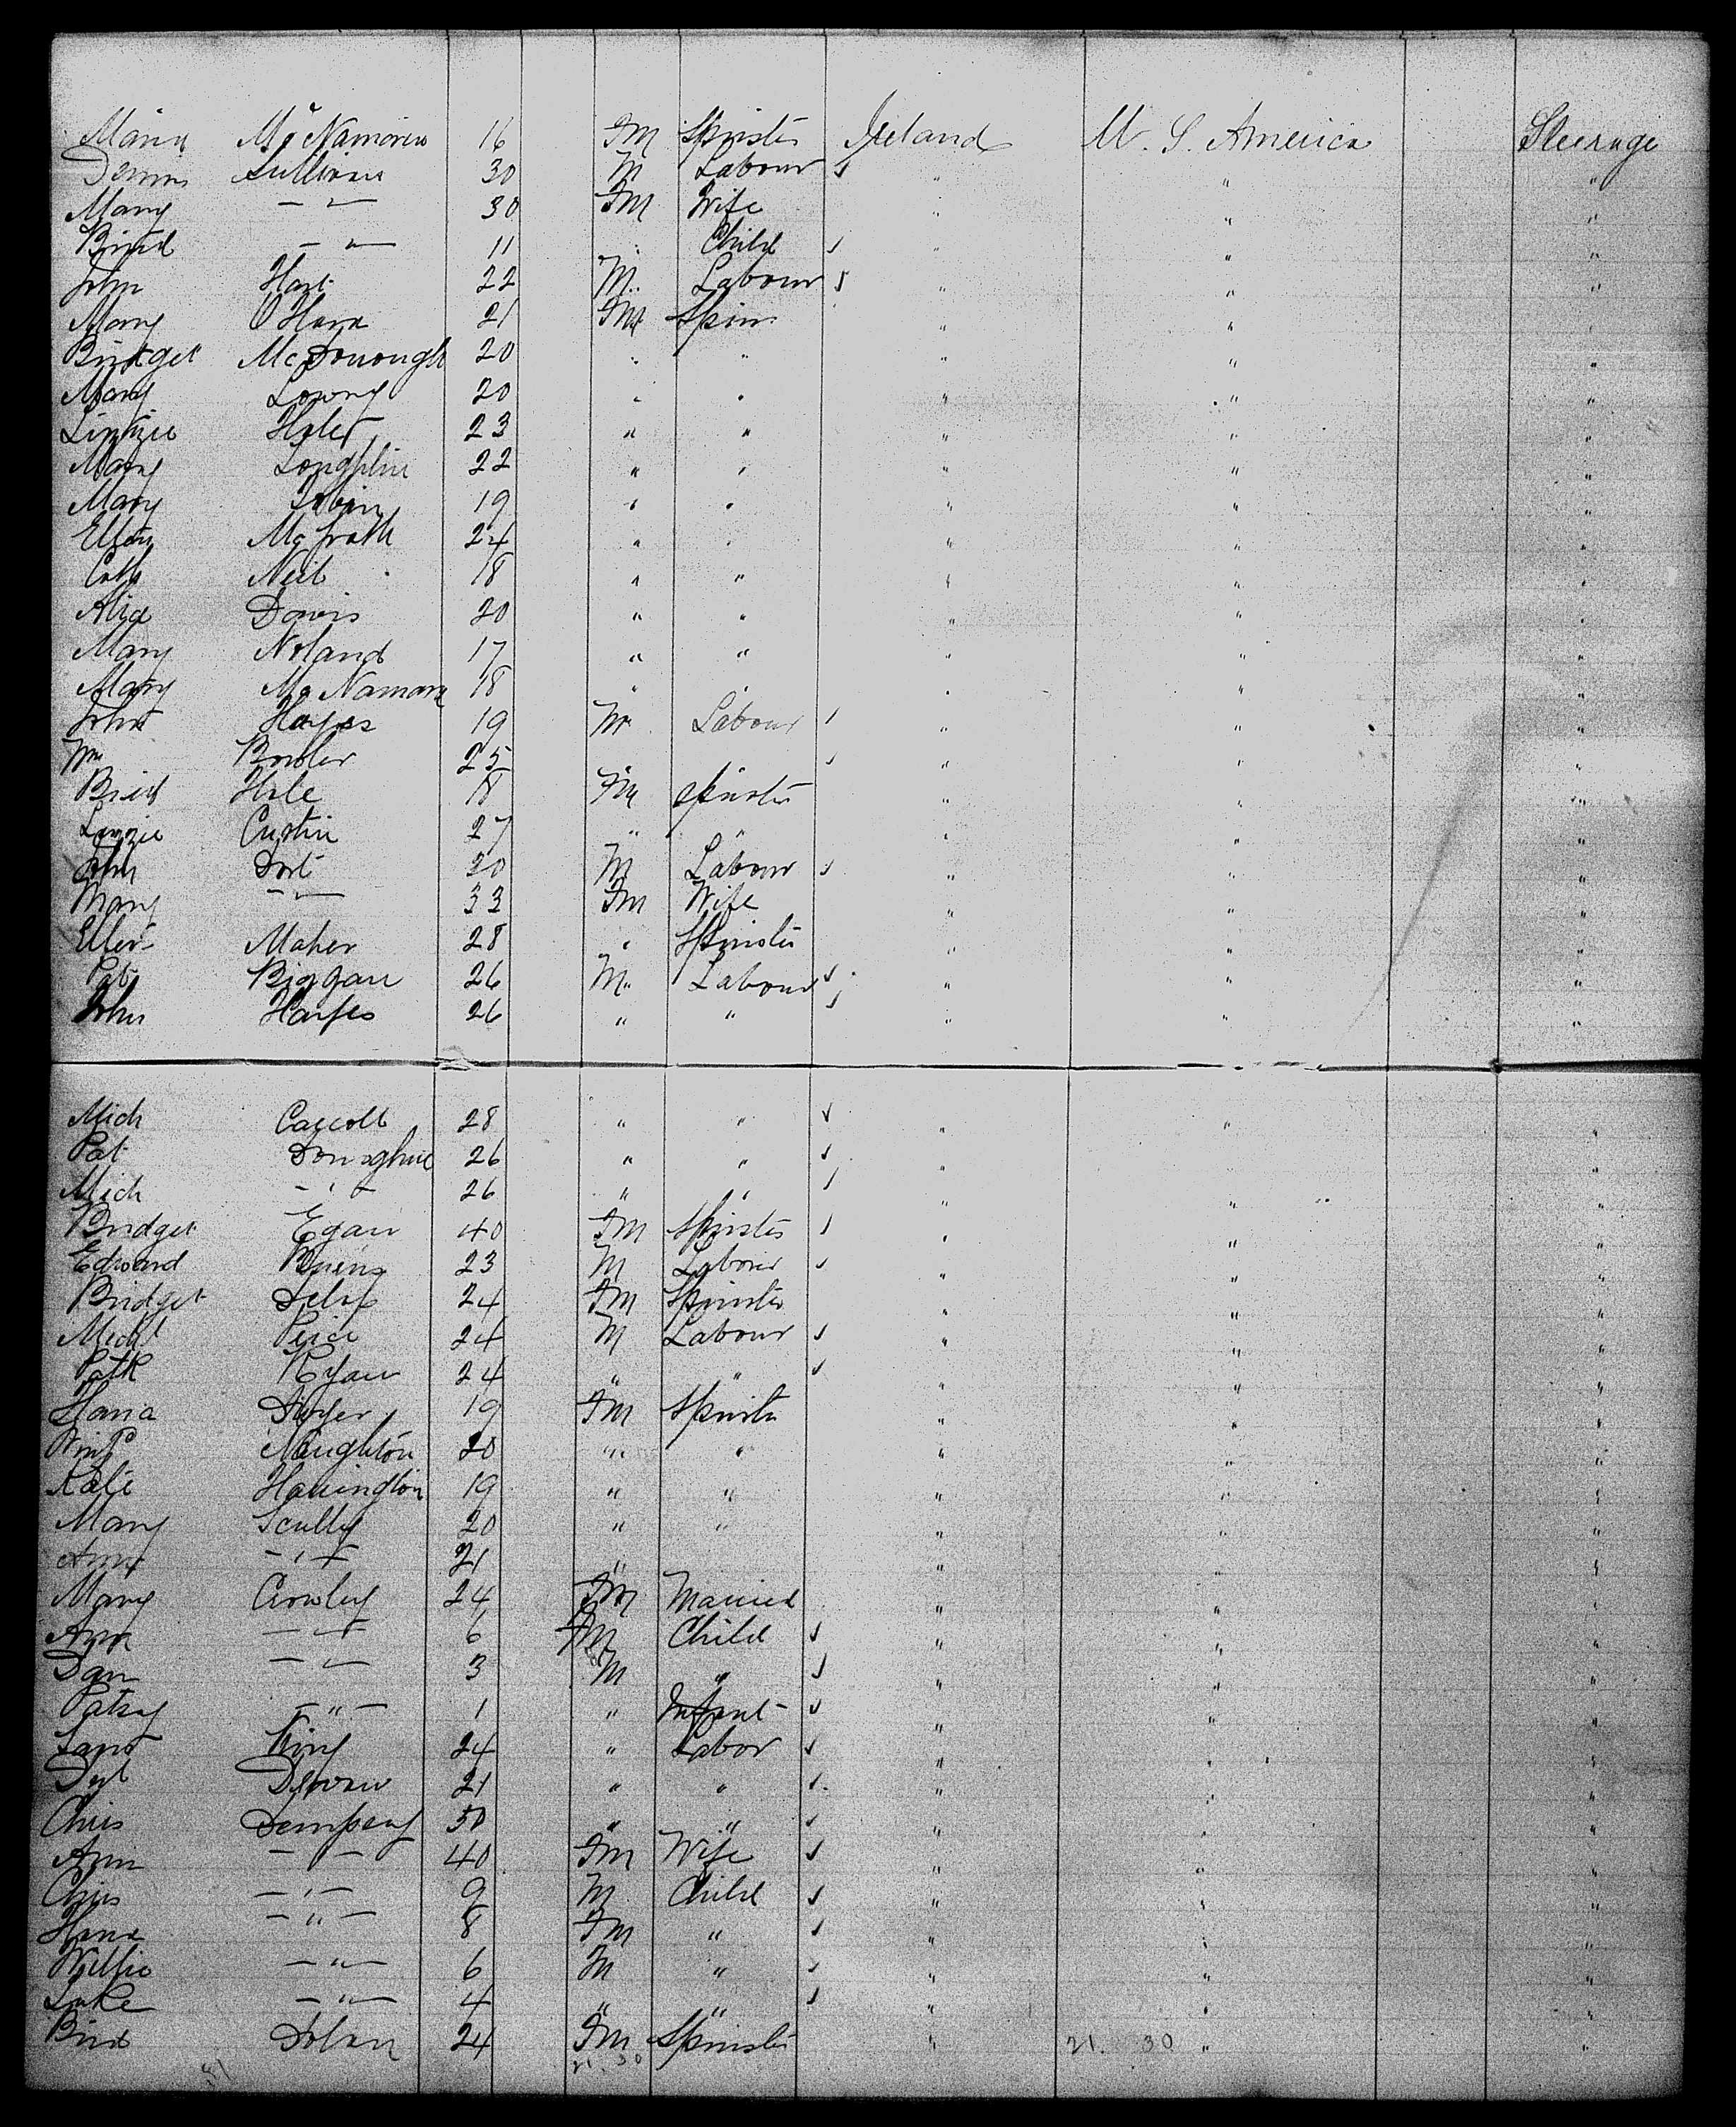 Maria McNamara 16 Fm Spinster Ireland U. S. America Steerage
Dennis Sullivan 30 M Labour " " "
Mary — " — 30 Fm Wife " " "
Brid — " — 11 " Child " " "
John Hart 22 M Labour " " "
Mary O'Hara 21 Fm Spin " " "
Bridget McDonough 20 " " " " "
Mary Lowry 20 " " " " "
Lizzie 23 " " " " "
Mary Loughlin 22 " " " " "
Mary Tobin 19 " " " " "
Ellen McGrath 24 " " " " "
Cath Neil 18 " " " " "
Alice Davis 20 " " " " "
Mary Noland 17 " " " " "
Mary McNamara 18 " " " " "
John Hayes 19 M Labour " " "
Wm Bowler 25 " " " " "
Brid Hale 18 Fm Spinster " " "
Lizzie Custin 27 " " " " "
John 30 M Labour " " "
Mary — " — 33 Fm Wife " " "
Ellen Maher 28 " Spinster " " "
Pat Biggan 26 M Labour " " "
John Hayes 26 " " " " "
Mich Carroll 28 " " " " "
Pat Donaghue 26 " " " " "
Mich — " — 26 " " " " "
Bridget Egan 40 Fm Spinster " " "
Edward 23 M Labour " " "
Bridget 24 Fm Spinster " " "
Michl Price 24 M Labour " " "
Patk Ryan 24 " " " " "
Hana Dwyer 19 Fm Spinster " " "
Naughton 20 " " " " "
Kate Harrington 19 " " " " "
Mary Scully 20 " " " " "
Ann — " — 21 " " " "
Mary Crowley 24 Fm Married " " "
Ann — " — 6 Fm Child " " "
Dan — " — 3 M " " " "
Patsy — " — 1 " Infant " " "
King 24 " Labor " " "
21 " " " " "
Chris Dempsey 50 " " " " "
Ann — " — 40 Fm Wife " " "
Chris — " — 9 M Child " " "
Hana — " — 8 Fm " " " "
Willie — " — 6 M " " " "
Luke — " — 4 " " " " "
Brid Dolan 24 Fm Spinster " " "
21. 30 21. 30